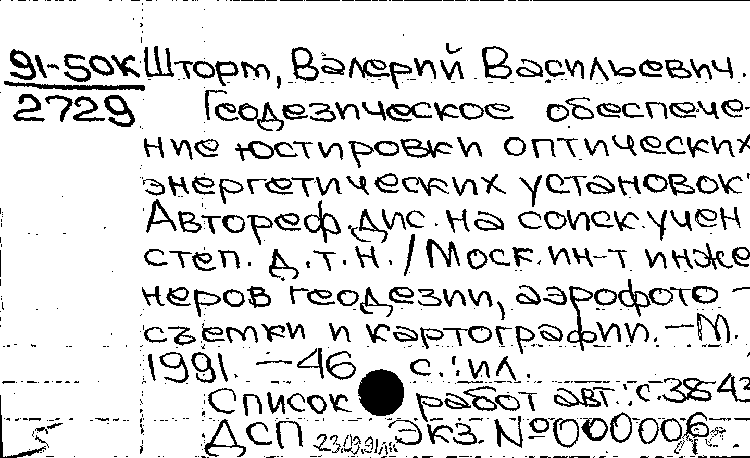 91-50К Шторм, Валерий Васильевич.
2729 Геодезическое обеспече-
ние юстировки оптических
энергетических установок:
Автореф.дис. на соиск.учен
степ. д.т.н./Моск.ин-т инже
неров геодезии, аэрофото-
съемки и картографии.-М.
1991. -46 с.:ил.
Список работ авт.: с.38-43
ДСП 23.09.91 Экз. №000006